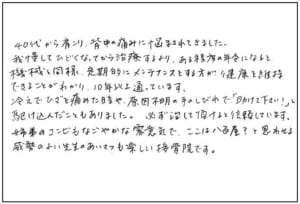 40代から肩こり、背中の痛みに悩まされてきました。
我慢してひどくなってから治療するより、ある程度の年令になると、
機械と同様、定期的にメンテナンスとする方が健康を維持
できることがわかり、10年以上通っています。
冷えでひざを痛めた時や、原因不明の手のしびれで「助けて下さい!」と
駆け込んだこともありました。必ず治して頂けると信頼しています。
姉弟のコンビもなごやかな雰意気で、ここは八百屋?と思わせる
威勢のよい先生のあいさつも楽しい接骨院です。